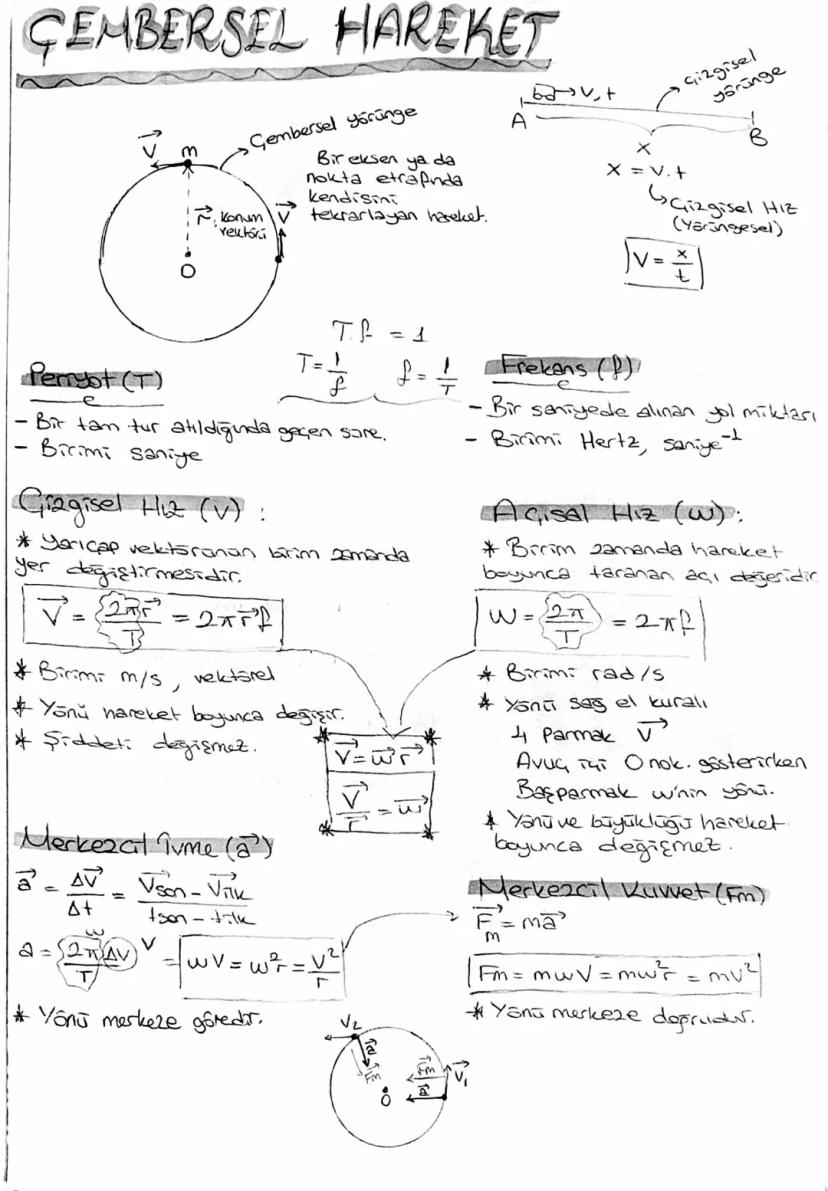 ÇEMBERSEL HAREKET
V⃗ m
Çembersel yörünge
Bir eksen ya da
nokta etrafında
kendisini
tekrarlayan hareket.
r⃗: konum
vektörü
V⃗
O
V, t
çizgisel
yörünge
A
B
x
x = V.t
Çizgisel Hız
(Yörüngesel)
V = x/t
T.f = 1
T = 1/f f = 1/T
Periyot (T)
- Bir tam tur atıldığında geçen süre.
- Birimi saniye
Frekans (f)
- Bir saniyede alınan yol miktarı
- Birimi Hertz, saniye⁻¹
Çizgisel Hız (V) :
* Yarıçap vektörünün birim zamanda
yer değiştirmesidir.
V⃗ = 2πr⃗/T = 2πr⃗f
* Birimi m/s, vektörel
* Yönü hareket boyunca değişir.
* Şiddeti değişmez.
Açısal Hız (w) :
* Birim zamanda hareket
boyunca taranan açı değeridir
W = 2π/T = 2πf
* Birimi rad/s
* Yönü sağ el kuralı
4 Parmak V⃗
Avuç içi O nok. gösterirken
Başparmak w'nin yönü.
* Yönü ve büyüklüğü hareket
boyunca değişmez.
V⃗ = w⃗ r⃗
V⃗/r⃗ = w⃗
Merkezcil İvme (a⃗)
a⃗ = ΔV⃗/Δt = V⃗son - V⃗ilk/tson - tilk
w
a = 2π/T ΔV V = wV = w²r = V²/r
* Yönü merkeze göredir.
Merkezcil Kuvvet (Fm)
F⃗m = ma⃗
Fm = mwV = mw²r = mV²
* Yönü merkeze doğrudur.
V₂
a⃗
F⃗m
F⃗m
V⃗₁
a⃗
O